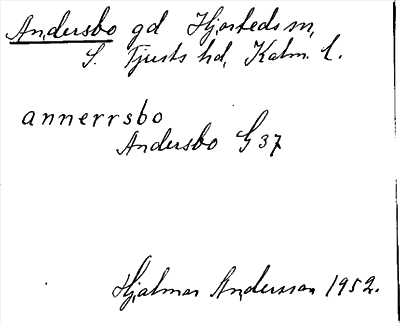 Andersbo gd Hjorteds sn,
S. Tjusts hd, Kalm. l.
annerrsbo
Andersbo G 37
Hjalmar Andersson 1952.